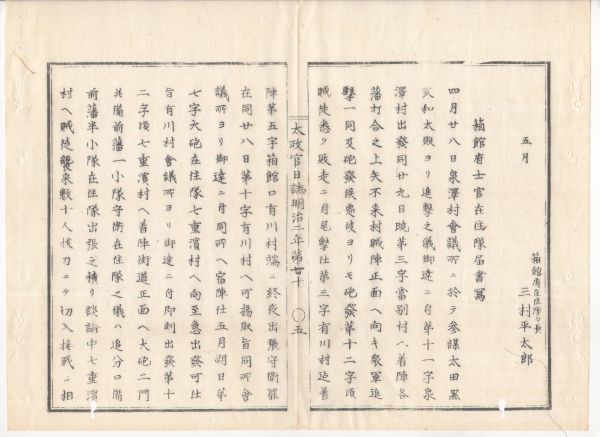 五月
箱館府在住隊々長
三村平太郎
箱館府士官在住隊届書寫
四月廿八日泉澤村會議所ニ於テ参謀太田黒
亥和太殿ヨリ進撃之儀御達ニ付第十一字泉
澤村出發同廿九日曉第三字當別村ヘ着陣各
藩打合之上矢不来村賊陣正面ヘ向キ衆軍進
撃一同及砲發候處彼ヨリモ砲發第十二字頃
賊徒悉ク敗走ニ付尾撃仕第三字有川村迠着
太政官日誌明治二年第七十
五
陣第五字箱館口有川村端ニ終夜出張守衛罷
在同廿八日第十字有川村ヘ可揚取旨同所會
議所ヨリ御達ニ付同所ヘ宿陣仕五月朔日第
七字大砲在住隊七重濱村ヘ向至急出發可仕
旨有川村會議所ヨリ御達ニ付即刻出發第十
二字頃七重濱村ヘ着陣街道正面ヘ大砲二門
并備前藩一小隊守衛在住隊之儀ハ追分口備
前藩半小隊在住隊出張之積リ談論中七重濱
村ヘ賊徒襲来數十人拔刀ニテ切入接戰ニ相